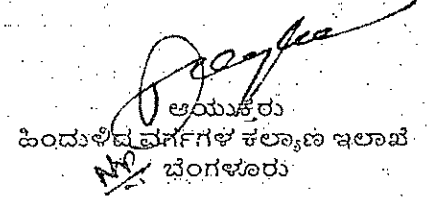 ಆಯುಕ್ತರು
ಹಿಂದುಳಿದ ವರ್ಗಗಳ ಕಲ್ಯಾಣ ಇಲಾಖೆ
ಬೆಂಗಳೂರು